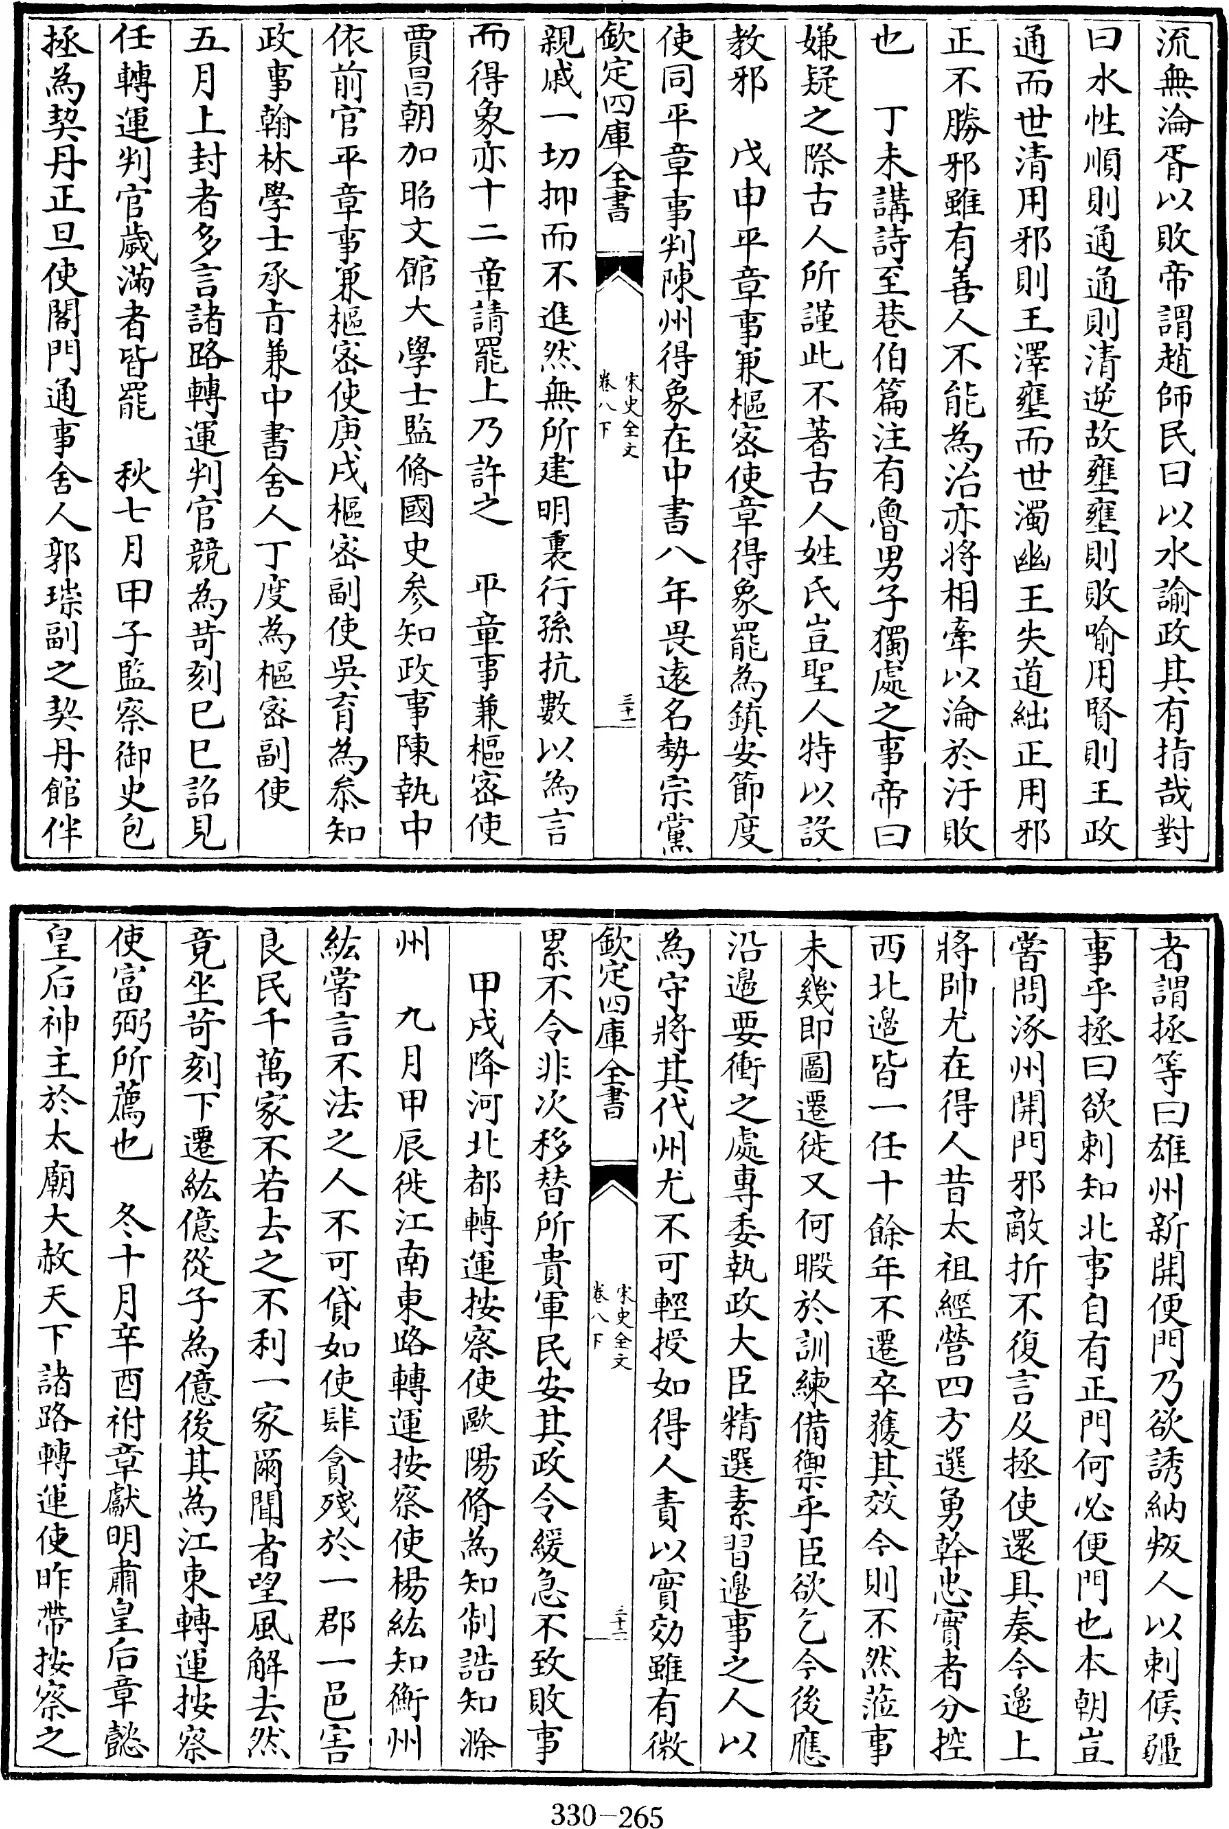 流無淪胥以敗帝謂趙師民曰以水諭政其有指哉對
曰水性順則通通則清逆故壅壅則敗喻用賢則王政
通而世清用邪則王澤壅而世濁幽王失道絀正用邪
正不勝邪雖有善人不能為治亦將相牽以淪於汙敗
也　丁未講詩至巷伯篇注有魯男子獨處之事帝曰
嫌疑之際古人所謹此不著古人姓氏豈聖人特以設
教邪　戊申平章事兼樞密使章得象罷為鎮安節度
使同平章事判陳州得象在中書八年畏遠名勢宗黨
欽定四庫全書
宋史全文
卷八下
三十一
親戚一切抑而不進然無所建明裏行孫抗數以為言
而得象亦十二章請罷上乃許之　平章事兼樞密使
賈昌朝加昭文館大學士監脩國史參知政事陳執中
依前官平章事兼樞密使庚戌樞密副使吳育為叅知
政事翰林學士承旨兼中書舍人丁度為樞密副使
五月上封者多言諸路轉運判官競為苛刻己巳詔見
任轉運判官歲滿者皆罷　秋七月甲子監察御史包
拯為契丹正旦使閤門通事舍人郭琮副之契丹館伴
者謂拯等曰雄州新開便門乃欲誘納叛人以刺候疆
事乎拯曰欲刺知北事自有正門何必便門也本朝豈
嘗問涿州開門邪敵折不復言及拯使還具奏今邊上
將帥尤在得人昔太祖經營四方選勇幹忠實者分控
西北邊皆一任十餘年不遷卒獲其效今則不然蒞事
未幾即圖遷徙又何暇於訓練備禦乎臣欲乞今後應
沿邊要衝之處專委執政大臣精選素習邊事之人以
為守將其代州尤不可輕授如得人責以實効雖有微
欽定四庫全書
宋史全文
卷八下
三十二
累不令非次移替所貴軍民安其政令緩急不致敗事
甲戌降河北都轉運按察使歐陽脩為知制誥知滁
州　九月甲辰徙江南東路轉運按察使楊紘知衡州
紘嘗言不法之人不可貸如使肆貪殘於一郡一邑害
良民千萬家不若去之不利一家爾聞者望風解去然
竟坐苛刻下遷紘億從子為億後其為江東轉運按察
使富弼所薦也　冬十月辛酉祔章獻明肅皇后章懿
皇后神主於太廟大赦天下諸路轉運使昨帶按察之
330-265